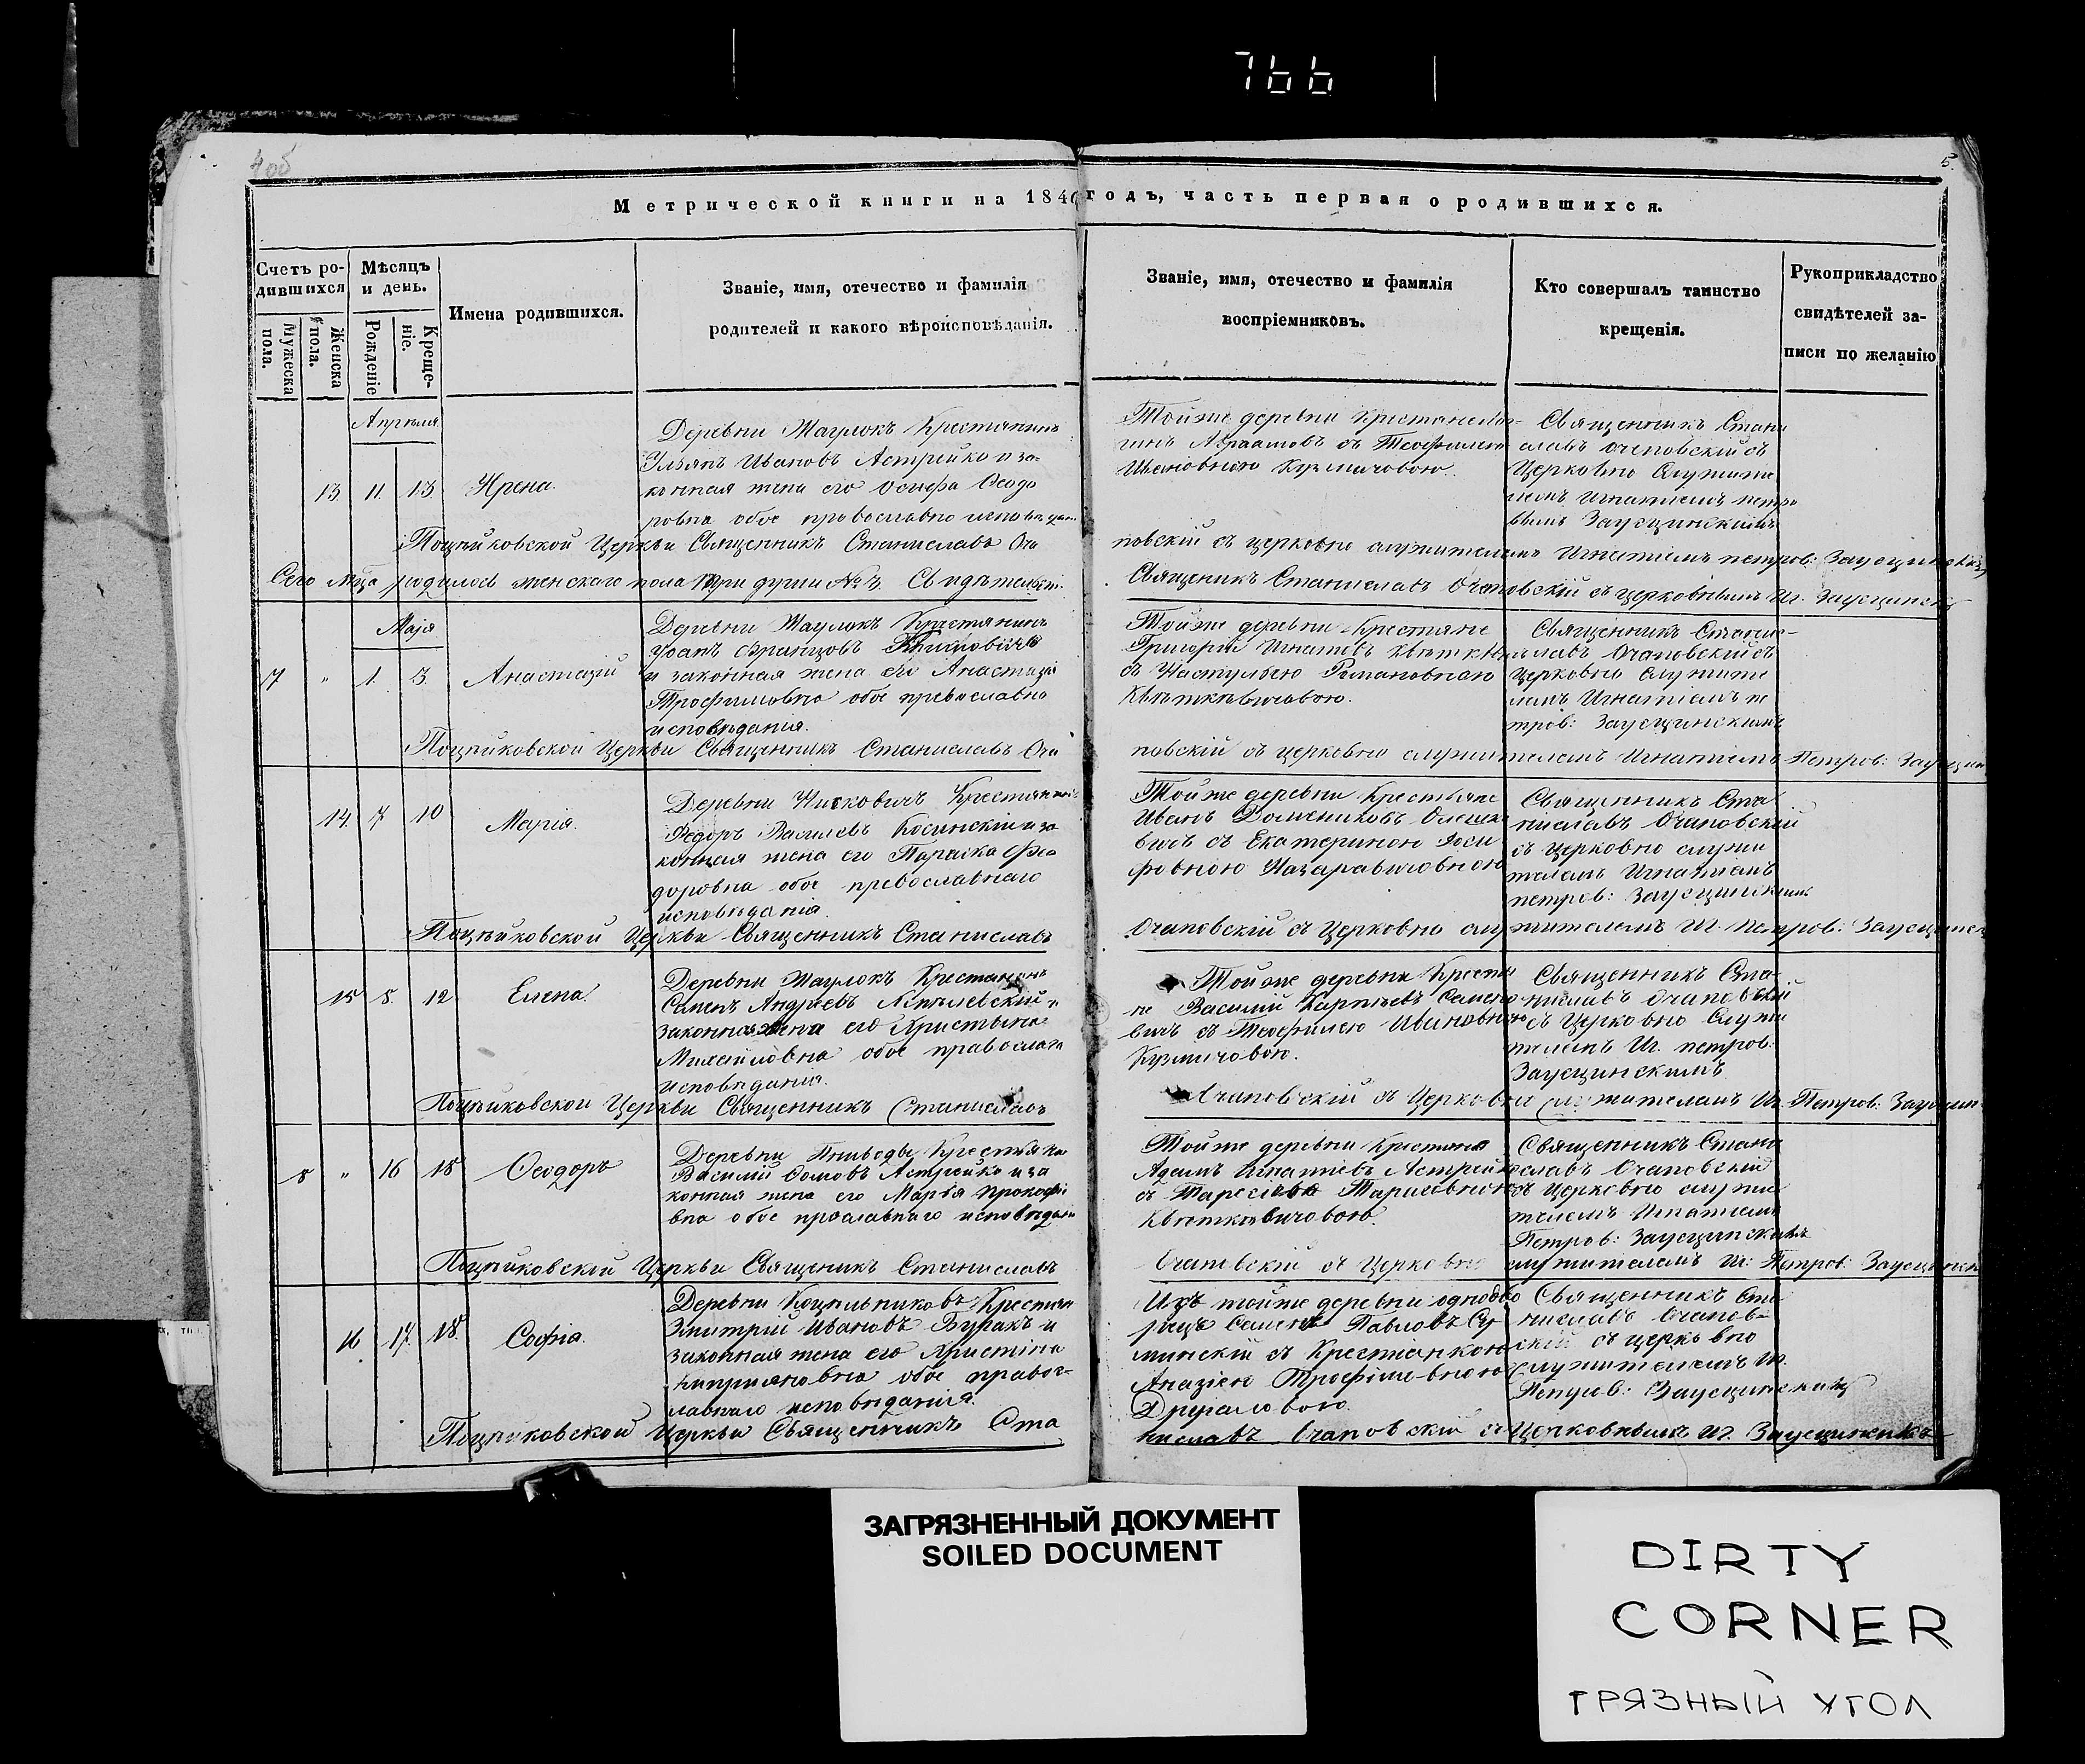 766
4об
5
Метрической книги на 1840 годъ, часть первая о родившихся.
Счетъ ро-
дившихся
Мужеска
пола.
Женска
пола.
Мѣсяцъ
и день.
Рожденіе
Креще-
ніе.
Имена родившихся.
Званіе, имя, отечество и фамилія
родителей и какого вѣроисповѣданія.
Званіе, имя, отечество и фамилія
воспріемниковъ.
Кто совершалъ таинство
крещенія.
Рукоприкладство
свидѣтелей за-
писи по желанію
Апрѣля
13 11 13 Ирена
Деревни Жаулокъ Крестянинъ
Ульянъ Ивановъ Астрейко и за-
конная жена его Осифа Ѳеодо
ровна обое православно
Тойже деревни
съ Теофилею
Ивановною Кузмичовою
Священникъ Стани
славъ Очаповскій съ
Церковно служите
лемъ Игнатіемъ петро
вымъ Заусцинскимъ
Поцѣйковской Церкви Священникъ Станиславъ Оча
повскій съ церковно служителемъ Игнатіемъ петров: Заусцинскимъ
Сего мца родилось женскаго пола три души № 3.
Священикъ Станиславъ Очаповскій съ церковнымъ Иг. Заусцинск
Маія
7 " 1. 3. Анастазій
Деревни Жаулокъ Крестянинъ
Іоанъ Францовъ
и законная жена его Анастазія
Трофимовна обое православно
исповѣданія.
Тойже деревни Крестяне
Григорій Игнатіевъ
съ Романовною
Квѣткѣвичовою.
Священникъ Станис-
лавъ Очаповскій съ
Церковно служите
лемъ Игнатіемъ пе
тров: Заусцинскимъ
Поцѣйковской Церкви Священникъ Станиславъ Оча
повскій съ церковно служителемъ Игнатіемъ Петров: Заусцин
14 7 10 Марія.
Деревни
Ѳедоръ Василевъ Косинскій и за
конная жена его Параска Ѳео
доровна обое православнаго
исповѣданія.
Тойже деревни Крестьяне
Иванъ Доминиковъ
вичъ съ Екатериною Іоси
фовною Назаравичовною
Священникъ Ста
ниславъ Очаповскій
съ церковно служи
телемъ Игнатіемъ
петров: Заусцинским
Поцѣйковской Церкви Священникъ Станиславъ
Очаповскій съ Церковно служителемъ Иг. Петров: Заусцинск
15 8. 12 Елена.
Деревни Жаулокъ Крестянинъ
Семенъ Андреевъ и
законная жена его Христына
Михайловна обое православн
исповѣданія.
Тойже деревни Крестя
не Василій Карпѣевъ Семено
вичъ съ Теофилею Ивановною
Кузмичовою.
Священникъ Ста-
ниславъ Очаповскій
съ Церковно служи
телемъ Иг. петров:
Заусцинскимъ
Поцѣйковской Церкви Священникъ Станиславъ
Очаповскій съ Церковно служителемъ Иг. Петров: Заусцин
8 " 16 18 Ѳеодоръ
Деревни Крестянин
Василій Астрейко и за
конная жена его Марья Прокофѣ
вна обое прославнаго исповѣдани
Тойже деревни Крестяне
Адамъ Игнатіевъ Астрейко
съ Тарасовною
Квѣтковичовою.
Священникъ Стани
славъ Очаповскій
съ Церковно служи
телемъ Игнатіемъ
Петров: Заусцинскимъ
Поцѣйковскій Церкви Священикъ Станиславъ
Очаповскій съ Церковно служителемъ Иг: Петров: Заусцинск
16 17. 18. Софія.
Деревни Крестян
Змитрій Ивановъ Буракъ и
законная жена его Христина
Киприяновна обое правос-
лавнаго исповѣданія.
Изъ тойже деревни однодво
рецъ Семенъ Павловъ
съ Крестіанкою
Аназіею Трофимовною
Священникъ Ста
ниславъ Очапов-
скій съ церковно
служителемъ Иг.
Петров: Заусцинскимъ
Поцѣйковской Церкви Священникъ Ста
ниславъ Очаповскій съ Церковнымъ Иг. Заусцинскимъ
ЗАГРЯЗНЕННЫЙ ДОКУМЕНТ
SOILED DOCUMENT
DIRTY
CORNER
ГРЯЗНЫЙ УГОЛ